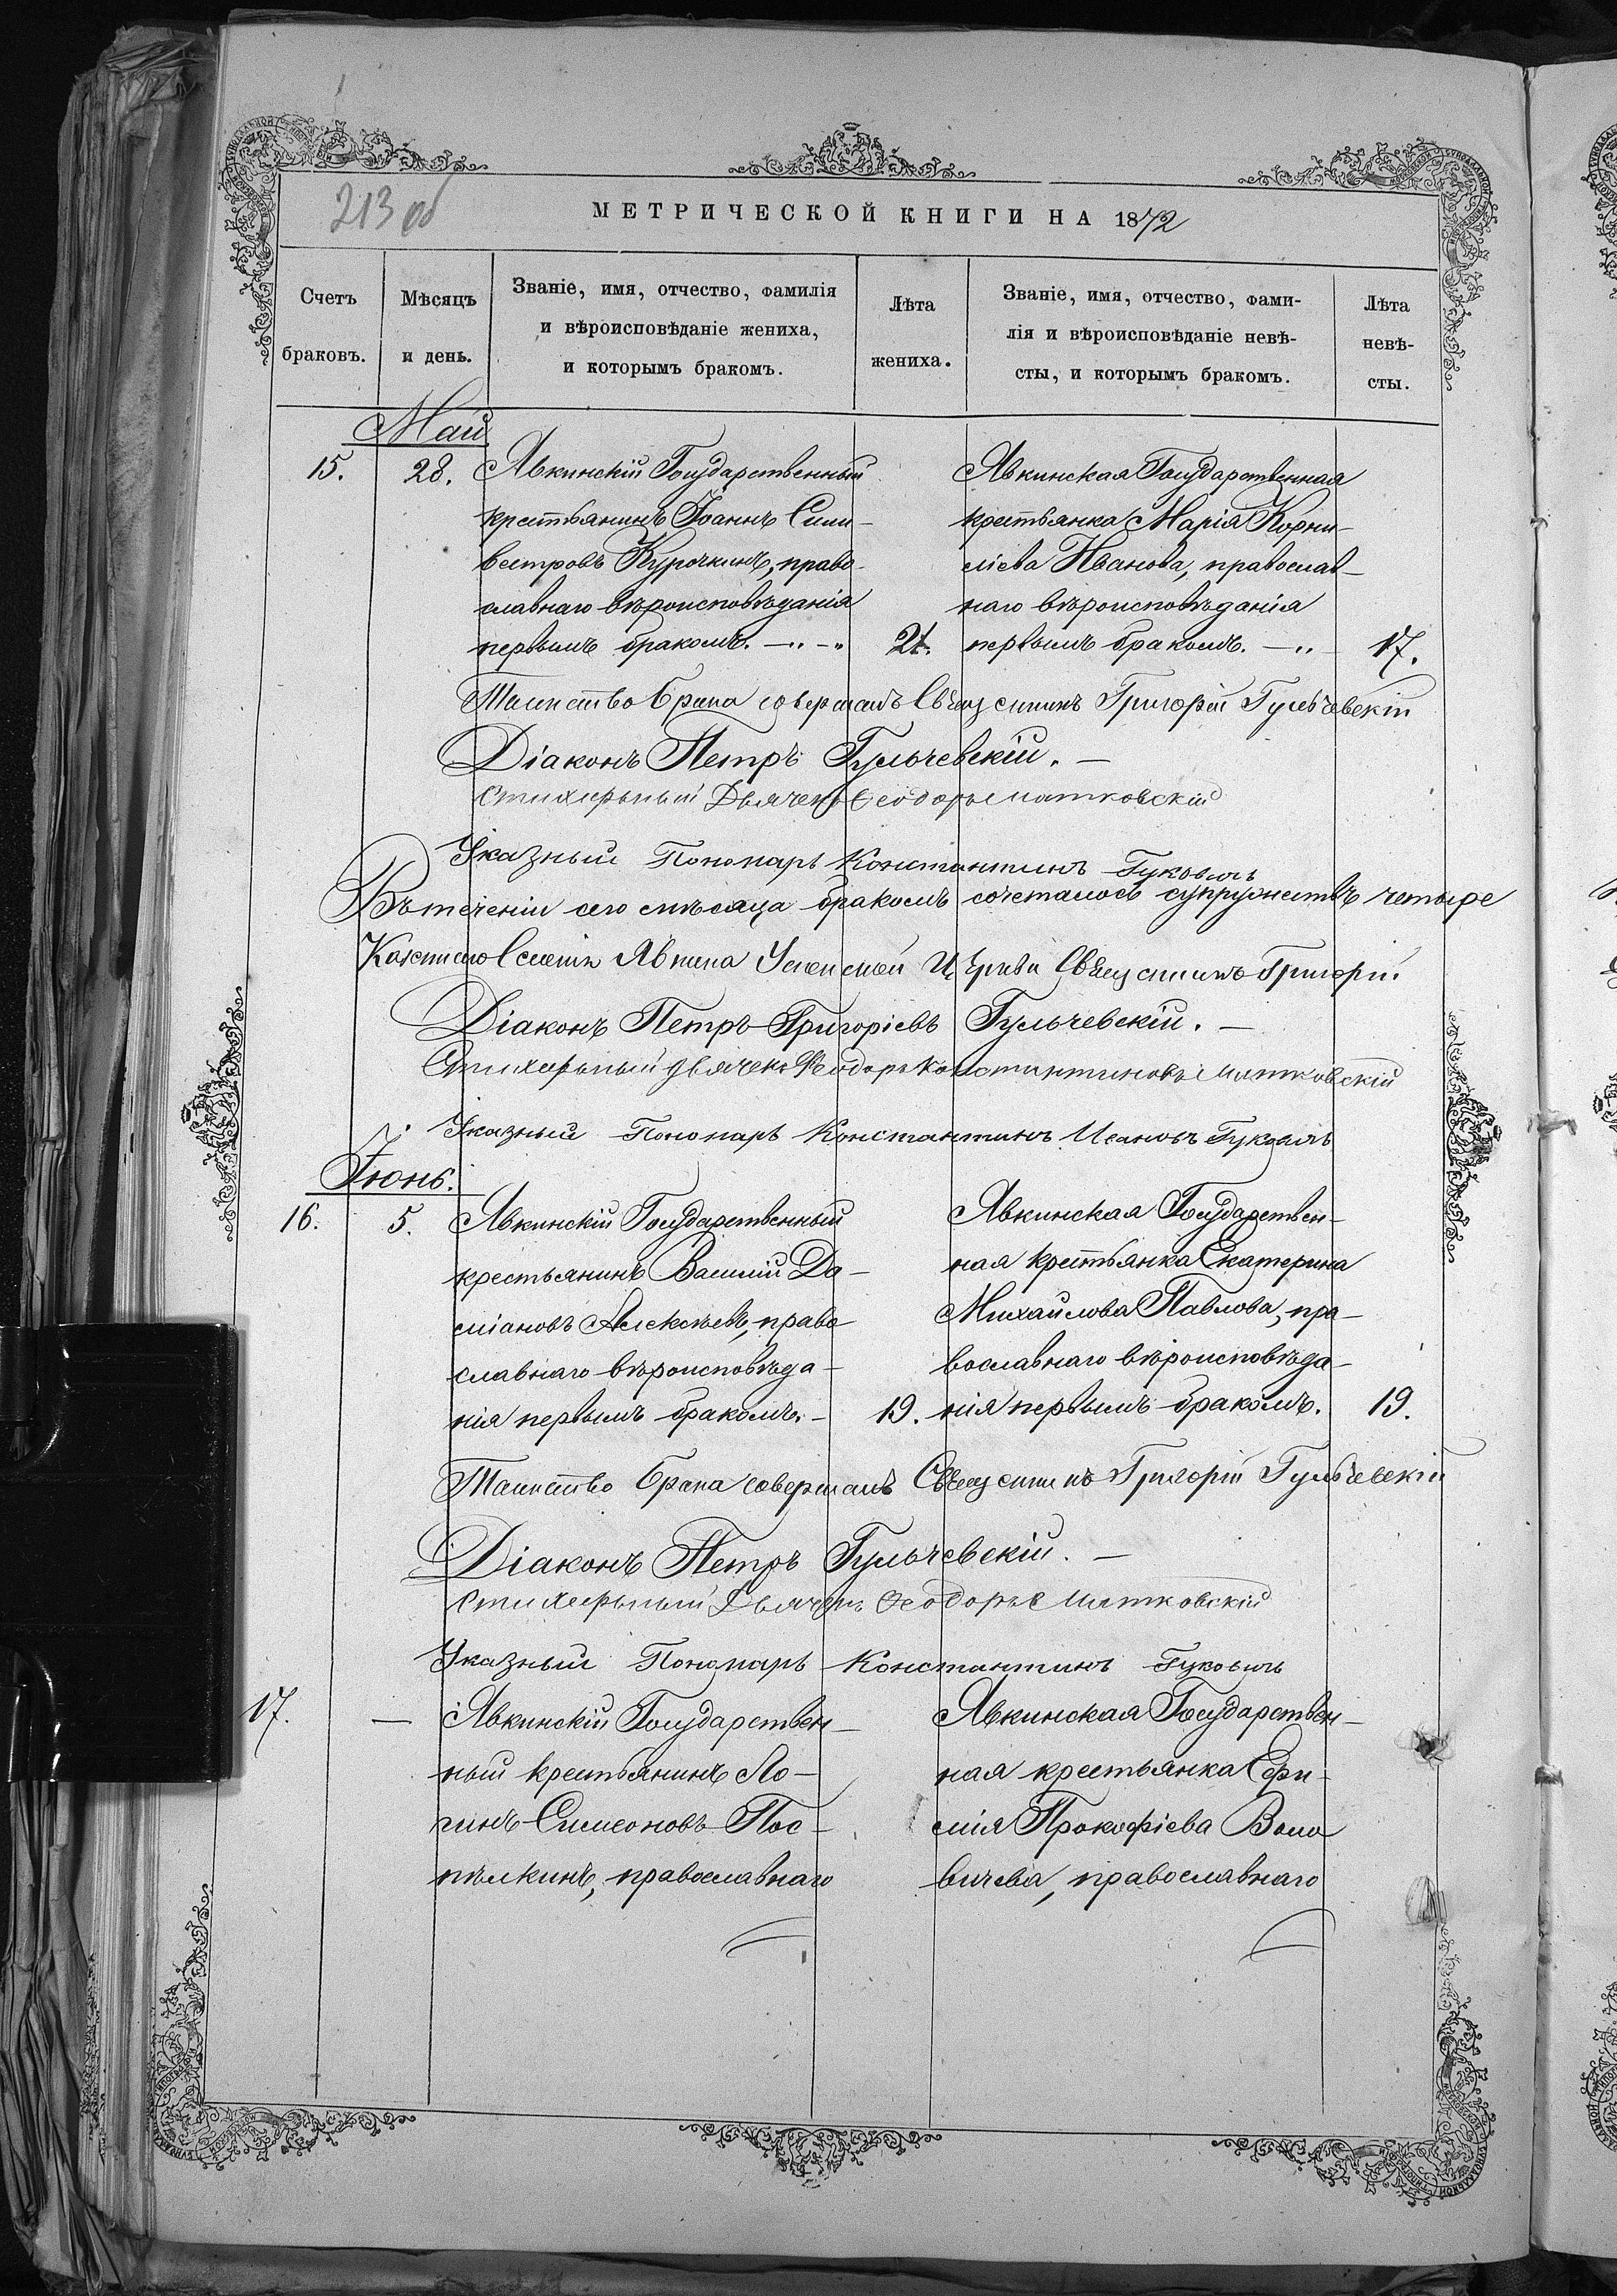 213 об
МЕТРИЧЕСКОЙ КНИГИ НА 1872
Счетъ браковъ.
Мѣсяцъ и день.
Званіе, имя, отчество, фамилія
и вѣроисповѣданіе жениха,
и которымъ бракомъ.
Лѣта жениха.
Званіе, имя, отчество, фами-
лія и вѣроисповѣданіе невѣ-
сты, и которымъ бракомъ.
Лѣта невѣ-
сты.
Май
15. 28. Явкинскій Государственный
крестьянинъ Іоаннъ Сили-
вестровъ Курочкинъ, право-
славнаго вѣроисповѣданія
первымъ бракомъ. 21.
Явкинская Государственная
крестьянка Марія Корни-
ліева Иванова, православ-
наго вѣроисповѣданія
первымъ бракомъ. 17.
Таинство брака совершалъ Священникъ Григорій Гульчевскій
Діаконъ Петръ Гульчевскій.
Стихарный Дьячекъ Ѳеодоръ Мятковскій
Указный Пономарь Константинъ
Въ теченіи сего мѣсяца бракомъ сочеталось супружествъ четыре
Явкина Успенской Церкви Священникъ Григорій
Діаконъ Петръ Григоріевъ Гульчевскій.
Стихарный Дьячекъ Ѳеодоръ Константиновъ Мятковскій
Указный Пономарь Константинъ Ивановъ
Іюнь.
16. 5. Явкинскій Государственный
крестьянинъ Василій Да-
міановъ Алексѣевъ, право-
славнаго вѣроисповѣда-
нія первымъ бракомъ. 19.
Явкинская Государствен-
ная крестьянка Екатерина
Михайлова Павлова, пра-
вославнаго вѣроисповѣда-
нія первымъ бракомъ. 19.
Таинство брака совершалъ Священникъ Григорій Гульчевскій
Діаконъ Петръ Гульчевскій.
Стихарный Дьячекъ Ѳеодоръ Мятковскій
Указный Пономарь Константинъ
17. — Явкинскій Государствен-
ный крестьянинъ Ло-
гинъ Симеоновъ Пос-
пѣлкинъ, православнаго
Явкинская Государствен-
ная крестьянка Ефи-
мія Прокофіева Воло-
вичева, православнаго